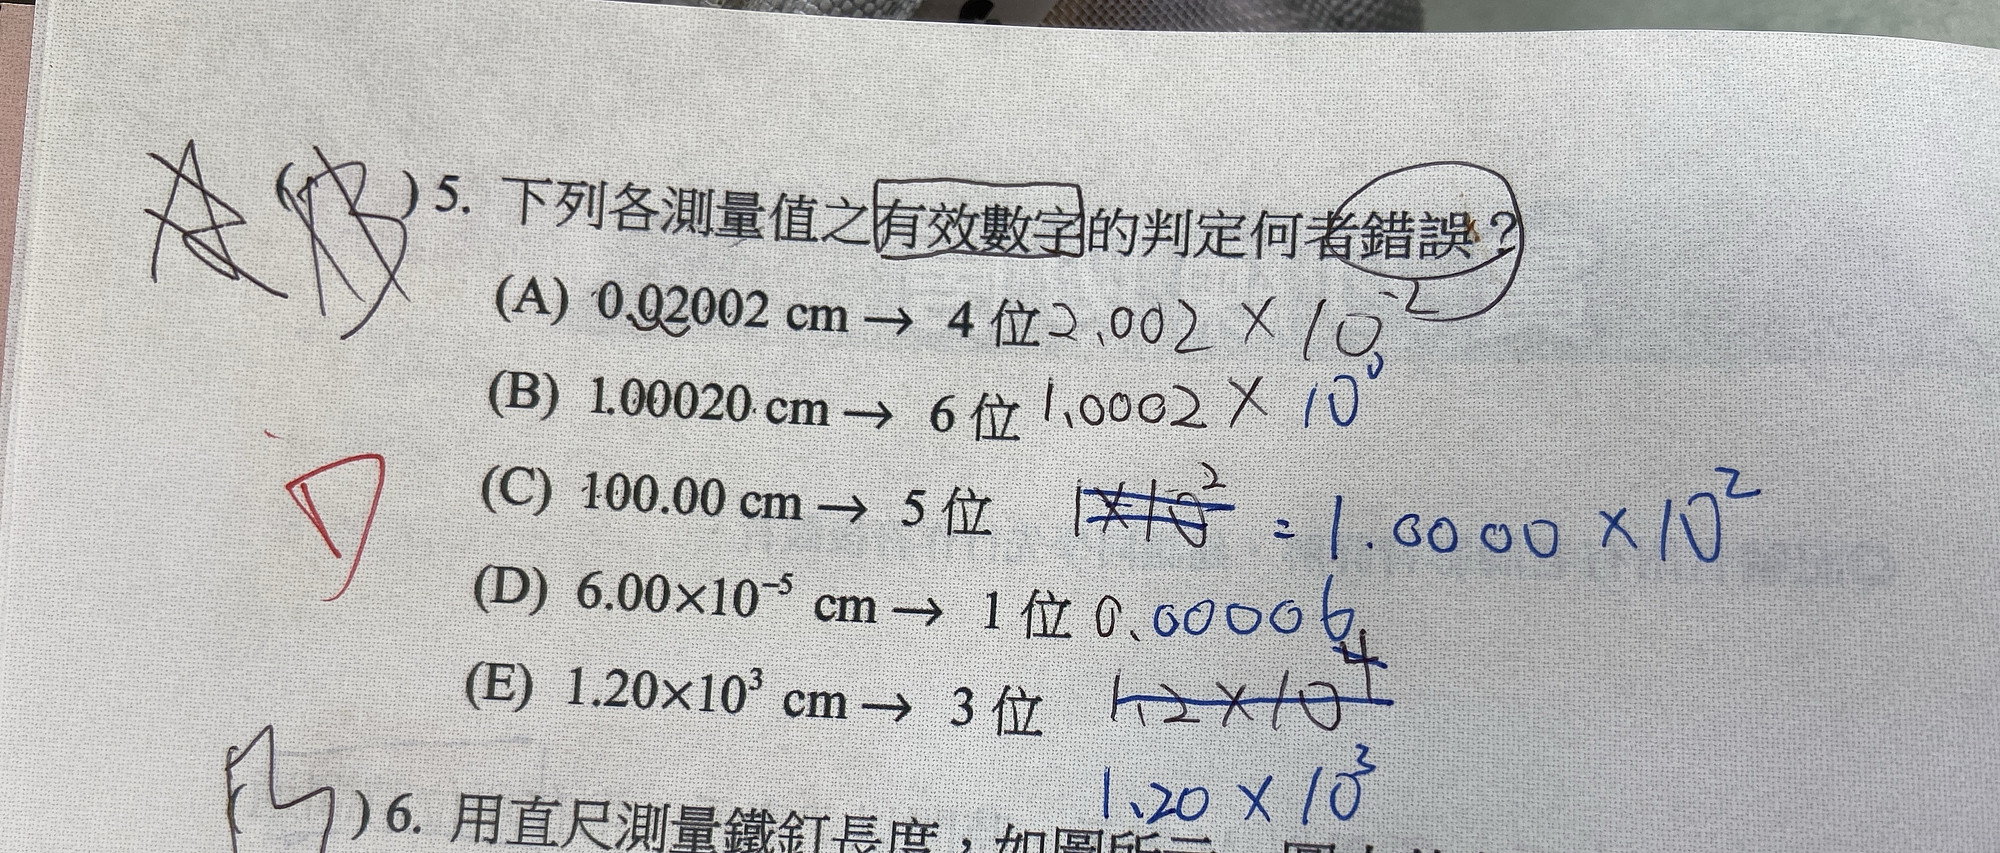 ( B ) 5. 下列各測量值之有效數字的判定何者錯誤？
(A) 0.02002 cm → 4 位 2.002 × 10⁻²
(B) 1.00020 cm → 6 位 1.0002 × 10⁰
(C) 100.00 cm → 5 位 1×10² = 1.0000 × 10²
D
(D) 6.00×10⁻⁵ cm → 1 位 0.00006
(E) 1.20×10³ cm → 3 位 1.2 × 10⁴
1.20 × 10³
( ) 6. 用直尺測量鐵釘長度，如圖所示